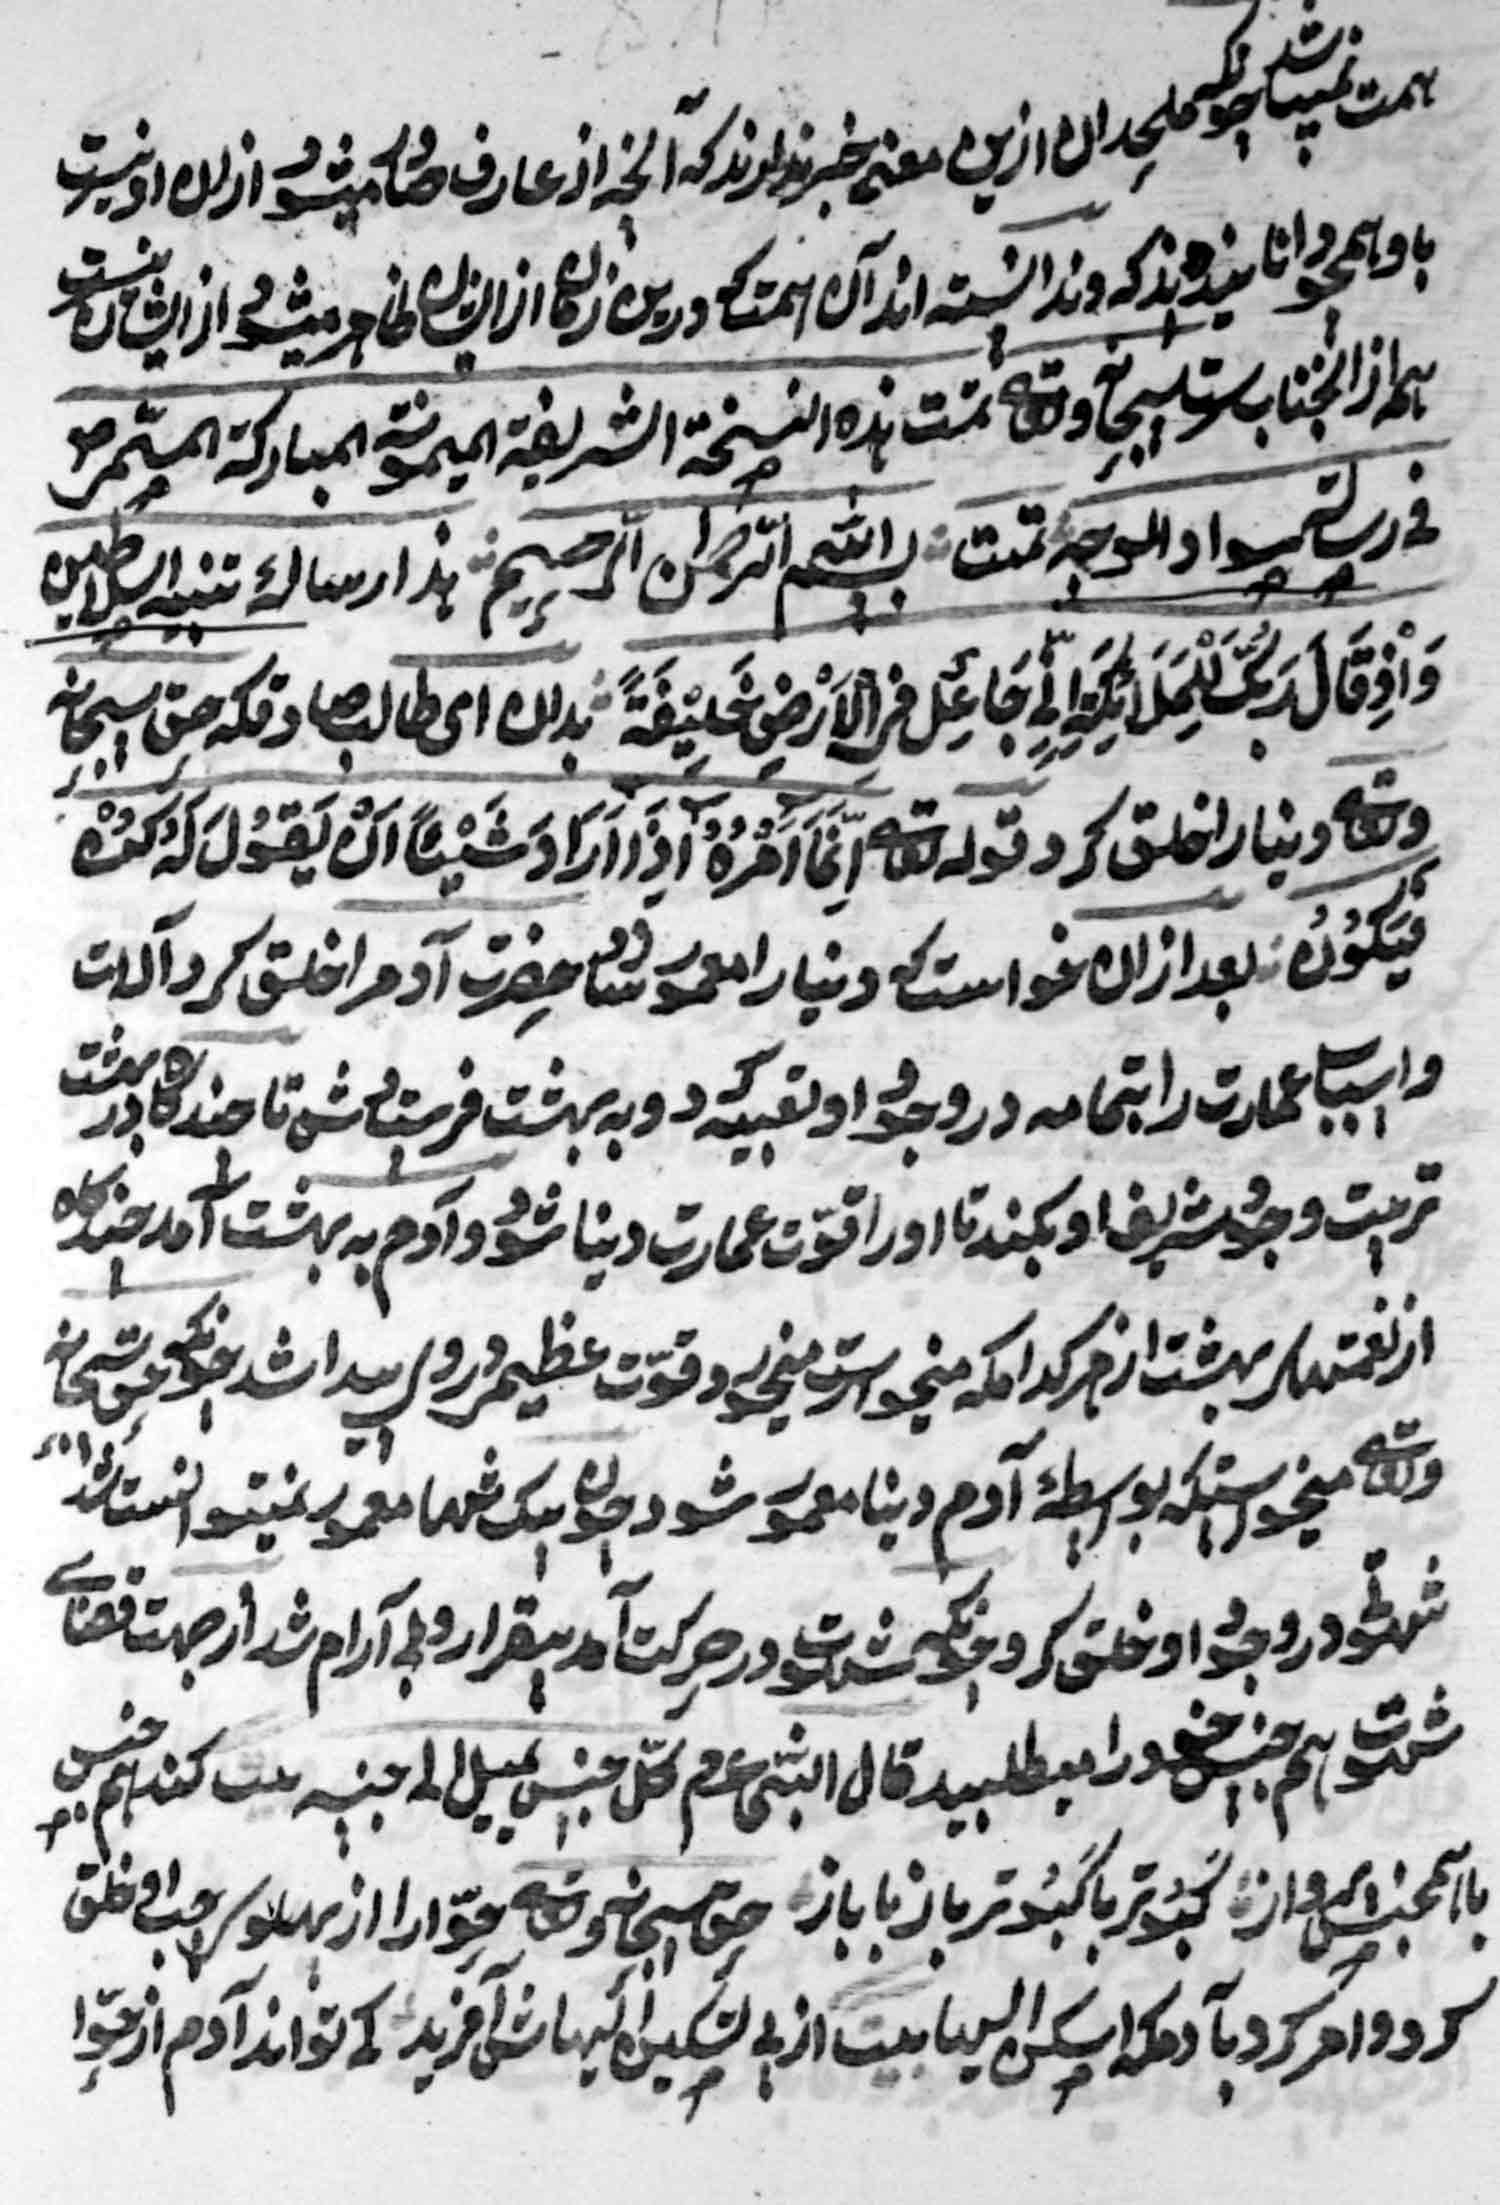 همت نمیباشد چونکه ملحدان ازین معنی خبر ندارند که آنچه از عارف صادر میشود ازان او نیست
باو همچو دانا میدهند که وندانسته اند آن همت که درین زمان از ایشان ظاهر میشود از ایشان نیست
همه از انجناب ست سبحانه وتعالی تمت هذه النسخة الشریفة المیمونة المبارکة المتمر
فی رسالة سواد الوجه تمت بسم الله الرحمن الرحیم هذا رسالهٔ تنبیه السلاطین
وَاِذْ قَالَ رَبُّکَ لِلْمَلَائِکَةِ اِنِّی جَاعِلٌ فِی الْاَرْضِ خَلِیْفَةً بدان ای طالب صادق که حق سبحانه
وتعالی دنیارا خلق کرد قوله تعالی اِنَّمَا اَمْرُهُ اِذَا اَرَادَ شَیْئاً اَنْ یَقُوْلَ لَهُ کُنْ
فَیَکُوْنُ بعد ازان خواست که دنیارا معمور سازد حضرت آدم را خلق کرد آلات
واسباب عمارت را بتمامه در وجود او تعبیه کرد و به بهشت فرستادش تا چندگاه در بهشت
تربیت وجود شریف او بکنند تا اورا قوّت عمارت دنیا شود و آدم به بهشت در آمد چندگاه
از نعمتهای بهشت از هر کدام که میخواست میخورد وقوّت عظیم در وی پیدا شد چونکه حق سبحانه
وتعالی میخواست که بواسطهٔ آدم دنیا معمور شود چون بیک تنها معمور نمیتوانست شد
شهوت در وجود او خلق کرد چونکه شهوت در حرکت آمد بیقرار و بی آرام شد از جهت قضای
شهوت هم جنس خود را میطلبید قال النبی عم کلّ جنس یمیل الی جنسه بیت کند هم جنس
با همجنس پرواز کبوتر با کبوتر باز با باز حق سبحانه وتعالی حوّا را از پهلوی چپ او خلق
کرد و امر کرد بآدم که اسکن الیها بیت از پی لیسکن الیهاش آفرید کی تواند آدم از حوّا